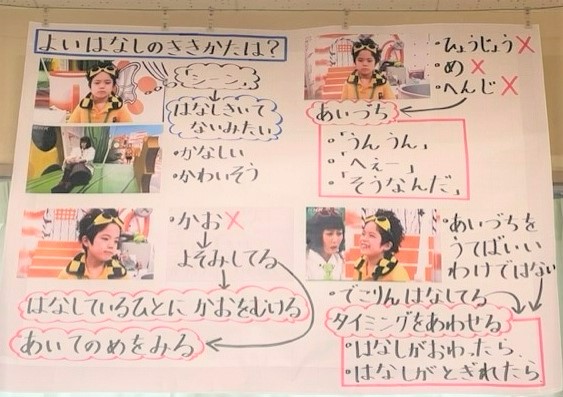 よいはなしのききかたは?
「シーン。」
はなしきいて
ないみたい
・かなしい
・かわいそう
・ひょうじょう×
・め×
・へんじ×
あいづち
・「うんうん」
・「へぇー」
・「そうなんだ」
・かお×
よそみしてる
はなしているひとに かおをむける
あいてのめをみる
・あいづちを
うてばいい
わけではない
・でこりんはなしてる
タイミングをあわせる
・はなしがおわったら
・はなしがとぎれたら